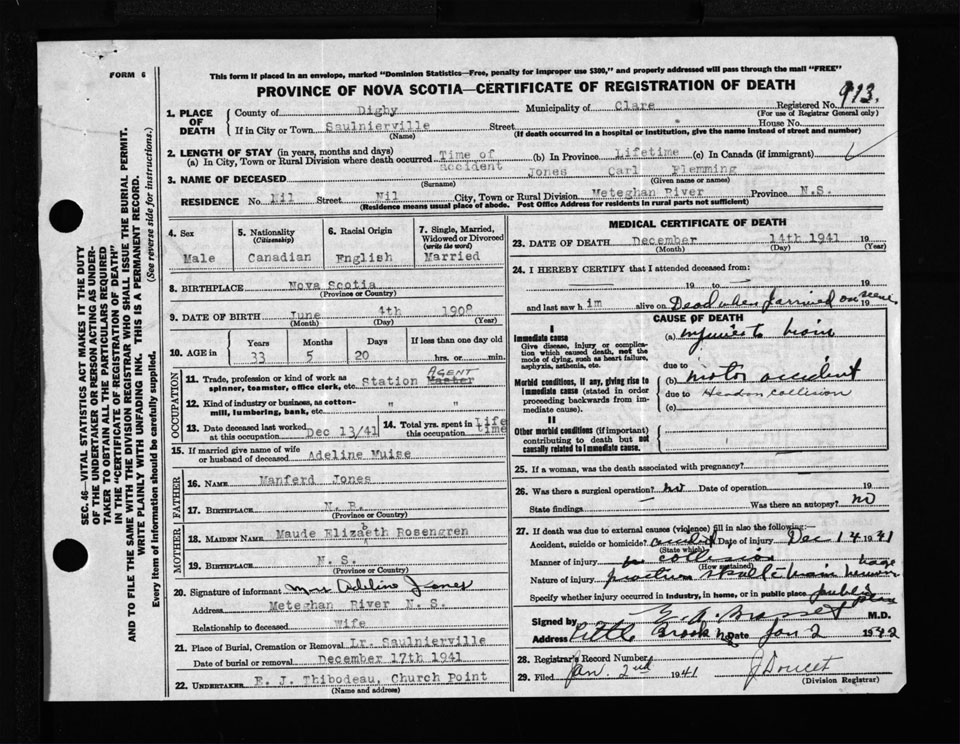 FORM 6
This form if placed in an envelope, marked "Dominion Statistics—Free, penalty for improper use $300," and properly addressed will pass through the mail "FREE"
PROVINCE OF NOVA SCOTIA—CERTIFICATE OF REGISTRATION OF DEATH
Registered No. 913.
(For use of Registrar General only)
1. PLACE OF DEATH
County of Digby Municipality of Clare
If in City or Town Saulnierville Street House No.
(Name) (If death occurred in a hospital or institution, give the name instead of street and number)
2. LENGTH OF STAY (in years, months and days)
(a) In City, Town or Rural Division where death occurred Time of accident (b) In Province Lifetime (c) In Canada (if immigrant)
3. NAME OF DECEASED Jones Carl Flemming
(Surname) (Given name or names)
RESIDENCE No. Nil Street Nil City, Town or Rural Division Meteghan River Province N.S.
(Residence means usual place of abode. Post Office Address for residents in rural parts not sufficient)
SEC. 46—VITAL STATISTICS ACT MAKES IT THE DUTY
OF THE UNDERTAKER OR PERSON ACTING AS UNDER-
TAKER TO OBTAIN ALL THE PARTICULARS REQUIRED
IN THE "CERTIFICATE OF REGISTRATION OF DEATH"
AND TO FILE THE SAME WITH THE DIVISION REGISTRAR WHO SHALL ISSUE THE BURIAL PERMIT.
WRITE PLAINLY WITH UNFADING INK. THIS IS A PERMANENT RECORD.
Every item of information should be carefully supplied. (See reverse side for instructions.)
4. Sex
Male
5. Nationality
(Citizenship)
Canadian
6. Racial Origin
English
7. Single, Married, Widowed or Divorced
(write the word)
Married
8. BIRTHPLACE Nova Scotia
(Province or Country)
9. DATE OF BIRTH June 4th 1908
(Month) (Day) (Year)
10. AGE in Years Months Days If less than one day old
33 5 20 hrs. or min.
OCCUPATION
11. Trade, profession or kind of work as spinner, teamster, office clerk, etc. Station Master AGENT
12. Kind of industry or business, as cotton-mill, lumbering, bank, etc. " "
13. Date deceased last worked at this occupation Dec 13/41
14. Total yrs. spent in this occupation Life time
15. If married give name of wife or husband of deceased Adeline Muise
FATHER
16. NAME Manferd Jones
17. BIRTHPLACE N. B.
(Province or Country)
MOTHER
18. MAIDEN NAME Maude Elizabeth Rosengren
19. BIRTHPLACE N. S.
(Province or Country)
20. Signature of informant Mrs Adeline Jones
Address Meteghan River N. S.
Relationship to deceased Wife
21. Place of Burial, Cremation or Removal Lr. Saulnierville
Date of burial or removal December 17th 1941
22. UNDERTAKER E. J. Thibodeau, Church Point
(Name and address)
MEDICAL CERTIFICATE OF DEATH
23. DATE OF DEATH December 14th 1941 19
(Month) (Day) (Year)
24. I HEREBY CERTIFY that I attended deceased from:
19 to 19
and last saw h im alive on Dead when I arrived on scene
CAUSE OF DEATH
I
Immediate cause
Give disease, injury or complication which caused death, not the mode of dying, such as heart failure, asphyxia, asthenia, etc.
(a) injuries to brain
due to
Morbid conditions, if any, giving rise to immediate cause (stated in order proceeding backwards from immediate cause).
(b) motor accident
due to Headon collision
(c)
II
Other morbid conditions (if important) contributing to death but not causally related to immediate cause.
25. If a woman, was the death associated with pregnancy?
26. Was there a surgical operation? no Date of operation 19
State findings Was there an autopsy? no
27. If death was due to external causes (violence) fill in also the following:
Accident, suicide or homicide? accident Date of injury Dec 14 1941
(State which)
Manner of injury collision
(How sustained)
Nature of injury fracture skull brain
Specify whether injury occurred in industry, in home, or in public place public place
Signed by M.D.
Address Little Brook NS Date Jan 2 1942
28. Registrar's Record Number
29. Filed Jan. 2nd 1941 J Doucet
(Division Registrar)